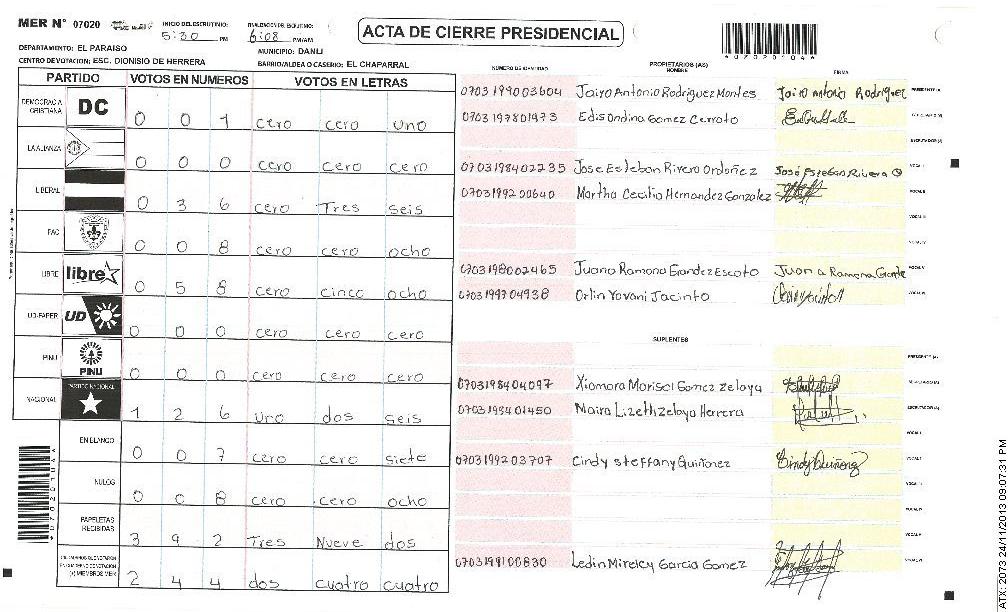 MER N° 07020 INICIO DEL ESCRUTINIO: 5:30 PM 6:08 PM/AM
ACTA DE CIERRE PRESIDENCIAL
*07020104*
DEPARTAMENTO: EL PARAISO MUNICIPIO: DANLI
CENTRO DE VOTACION: ESC. DIONISIO DE HERRERA BARRIO/ALDEA O CASERIO: EL CHAPARRAL
PARTIDO VOTOS EN NUMEROS VOTOS EN LETRAS
DEMOCRACIA CRISTIANA DC 0 0 1 cero cero uno
LA ALIANZA 0 0 0 cero cero cero
LIBERAL 0 3 6 cero Tres seis
PAC 0 0 8 cero cero ocho
LIBRE libre 0 5 8 cero cinco ocho
UD-FAPER UD 0 0 0 cero cero cero
PINU PINU 0 0 0 cero cero cero
NACIONAL PARTIDO NACIONAL 1 2 6 uno dos seis
EN BLANCO 0 0 7 cero cero siete
NULOS 0 0 8 cero cero ocho
PAPELETAS RECIBIDAS 3 9 2 Tres Nueve dos
(+) MIEMBROS MER 2 4 4 dos cuatro cuatro
NUMERO DE IDENTIDAD PROPIETARIOS (AS) NOMBRE FIRMA
0703199003604 Jairo Antonio Rodriguez Montes Jairo Antonio Rodriguez PRESIDENTE (A)
0703197801973 Edis Ondina Gomez Cerrato
0703198402235 Jose Esteban Rivera Ordoñez José Esteban Rivera O
0703199200640 Martha Cecilia Hernandez Gonzalez
0703198002465 Juana Ramona Grandez Escoto Juana Ramona
0703199704938 Orlin Yovani Jacinto
SUPLENTES
PRESIDENTE (A)
0703198404097 Xiomara Marisol Gomez Zelaya
0703198401450 Maira Lizeth Zelaya Herrera
0703199203707 Cindy Steffany Quiñonez
0703199100830 Ledin Mirelcy Garcia Gomez
*07020104*
ATX: 2073 24/11/2013 09:07:31 PM